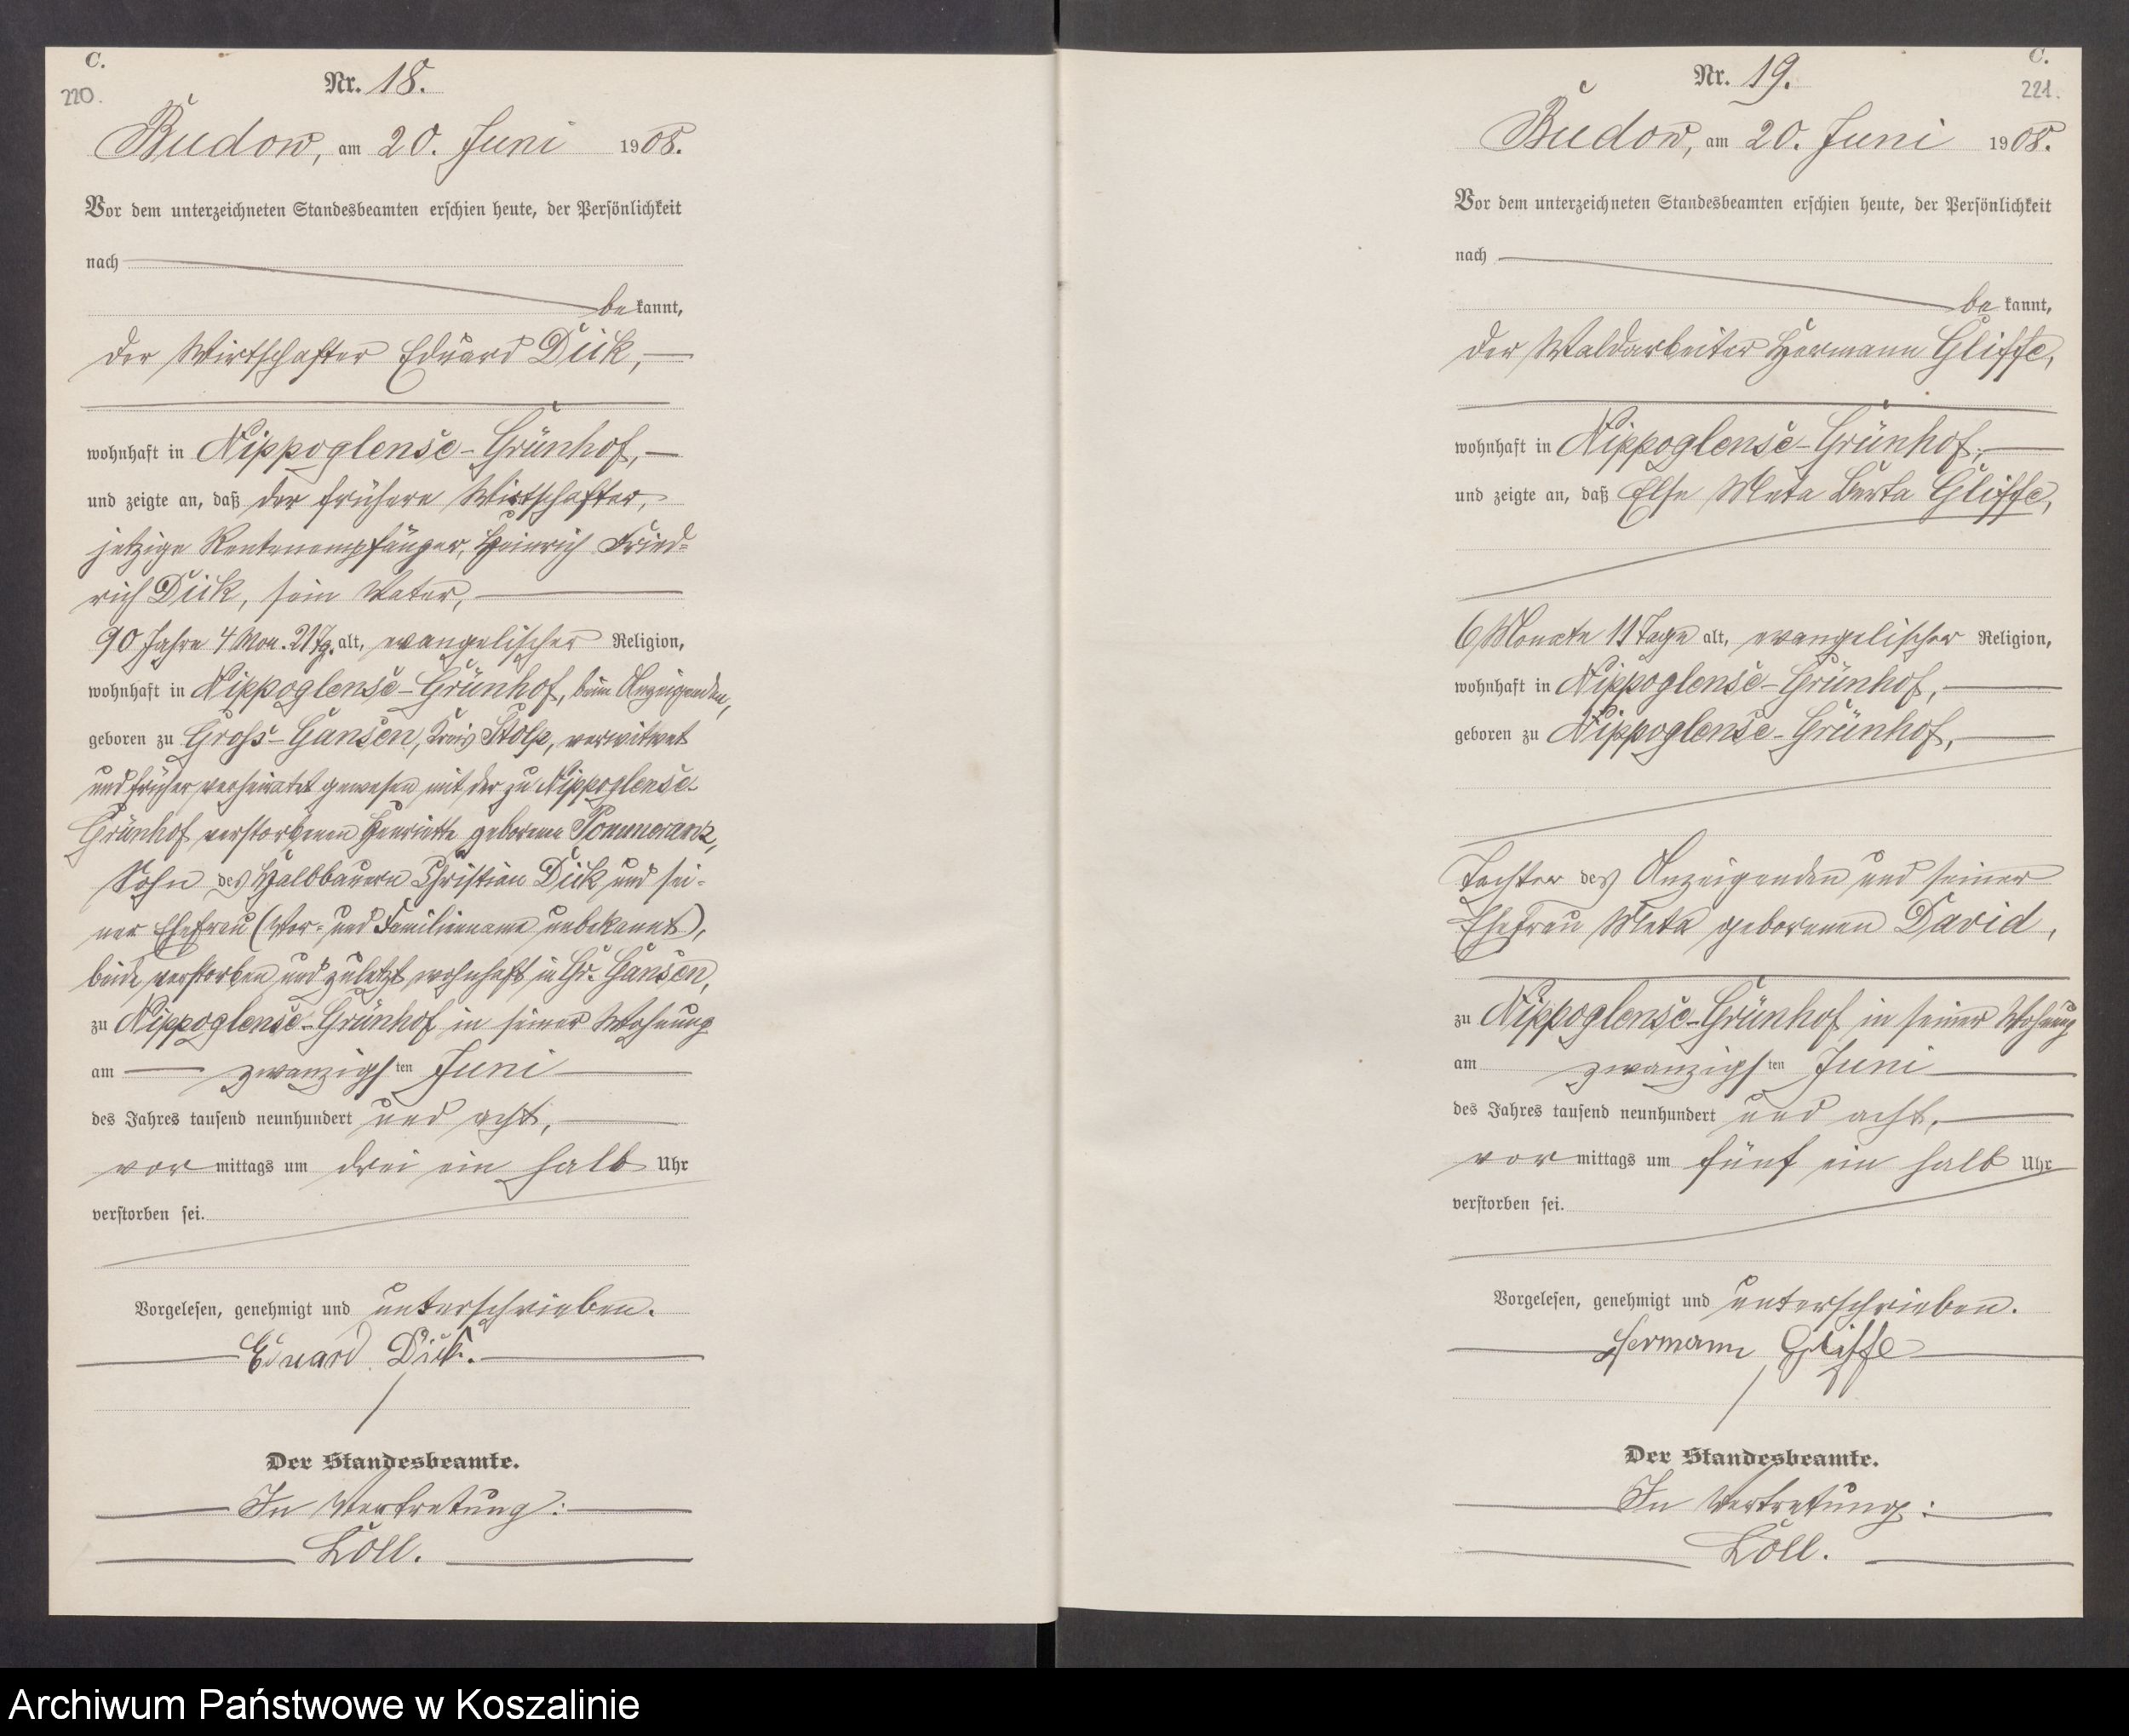 C.
220.
Nr. 18.
Budow, am 20. Juni 1908.
Vor dem unterzeichneten Standesbeamten erschien heute, der Persönlichkeit
nach
be kannt,
der Wirtschafter Eduard Dück,
wohnhaft in Nippoglense-Grünhof,
und zeigte an, daß der frühere Wirtschafter,
jetzige Rentenempfänger, Heinrich Fried=
rich Dück, sein Vater,
90 Jahre 4 Mon. 21 Tg. alt, evangelischer Religion,
wohnhaft in Nippoglense-Grünhof, beim Anzeigenden,
geboren zu Gross-Gansen, Kreis Stolp, verwitwet
und früher verheiratet gewesen mit der zu Nippoglense-
Grünhof verstorbenen Henriette geborene Pommeranz,
Sohn des Halbbauern Christian Dück und sei-
ner Ehefrau (Vor- und Familienname unbekannt),
beide verstorben und zuletzt wohnhaft in Gr. Gansen,
zu Nippoglense-Grünhof in seiner Wohnung
am zwanzigsten Juni
des Jahres tausend neunhundert und acht,
vor mittags um drei ein halb Uhr
verstorben sei.
Vorgelesen, genehmigt und unterschrieben.
Eduard Dück.
Der Standesbeamte.
In Vertretung:
Löll.
C.
221.
Nr. 19.
Budow, am 20. Juni 1908.
Vor dem unterzeichneten Standesbeamten erschien heute, der Persönlichkeit
nach
be kannt,
der Waldarbeiter Hermann Gliffe,
wohnhaft in Nippoglense-Grünhof,
und zeigte an, daß Else Meta Berta Gliffe,
6 Monate 11 Tage alt, evangelischer Religion,
wohnhaft in Nippoglense-Grünhof,
geboren zu Nippoglense-Grünhof,
Tochter des Anzeigenden und seiner
Ehefrau Meta geborenen David,
zu Nippoglense-Grünhof in seiner Wohnung
am zwanzigsten Juni
des Jahres tausend neunhundert und acht,
vor mittags um fünf ein halb Uhr
verstorben sei.
Vorgelesen, genehmigt und unterschrieben.
Hermann Gliffe
Der Standesbeamte.
In Vertretung:
Löll.
Archiwum Państwowe w Koszalinie